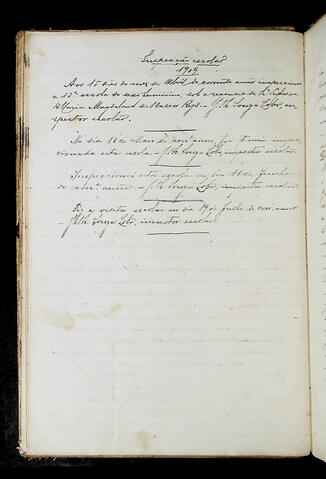 Inspecção escolar
1909
Aos 15 dias do mez de Abril do corrente anno inspeccionei
a 13ª escola do sexo feminino, sob a regencia da D. Professora
Maria Magdalena de Barros Rego. - J. Th. Souza Lobo, ins-
pector escolar.
No dia 11 de Maio do corr.e anno, foi p. mim inspec-
cionada esta escola. - J. Th. Souza Lobo, inspector escolar.
Inspeccionei esta escola no dia 11 de Junho
do corr.e anno. - J. Th. Souza Lobo, inspector escolar.
Fiz a visita escolar no dia 19 de Julho do corr. anno.
- J. Th. Souza Lobo, inspector escolar.